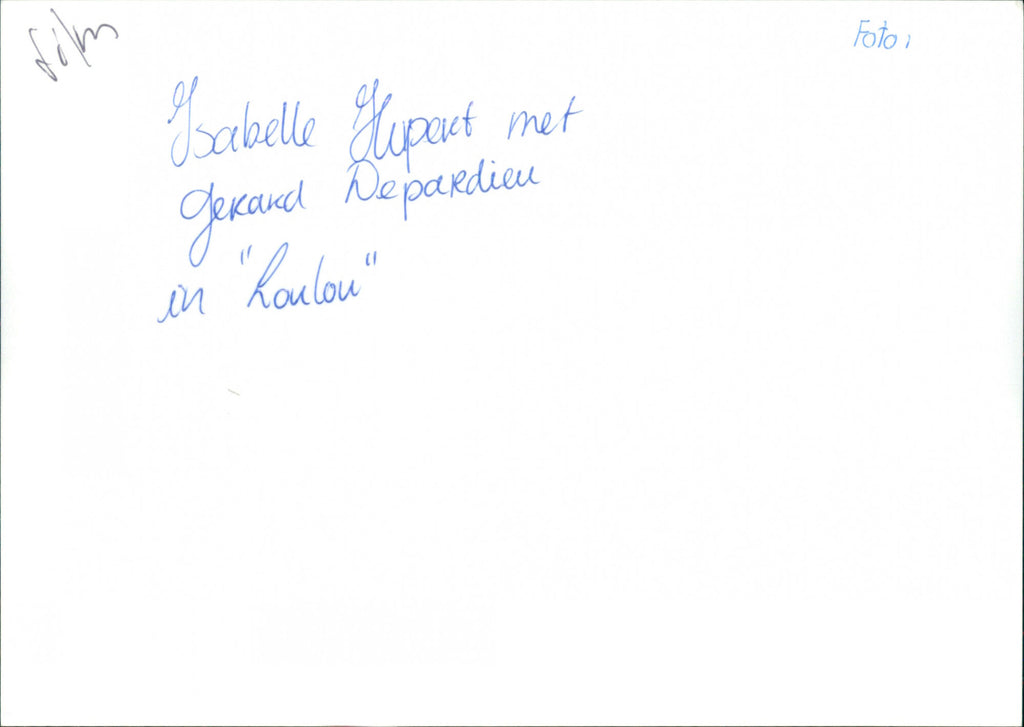 film
Foto:
Isabelle Hupert met
Gerard Depardieu
in "Loulou"